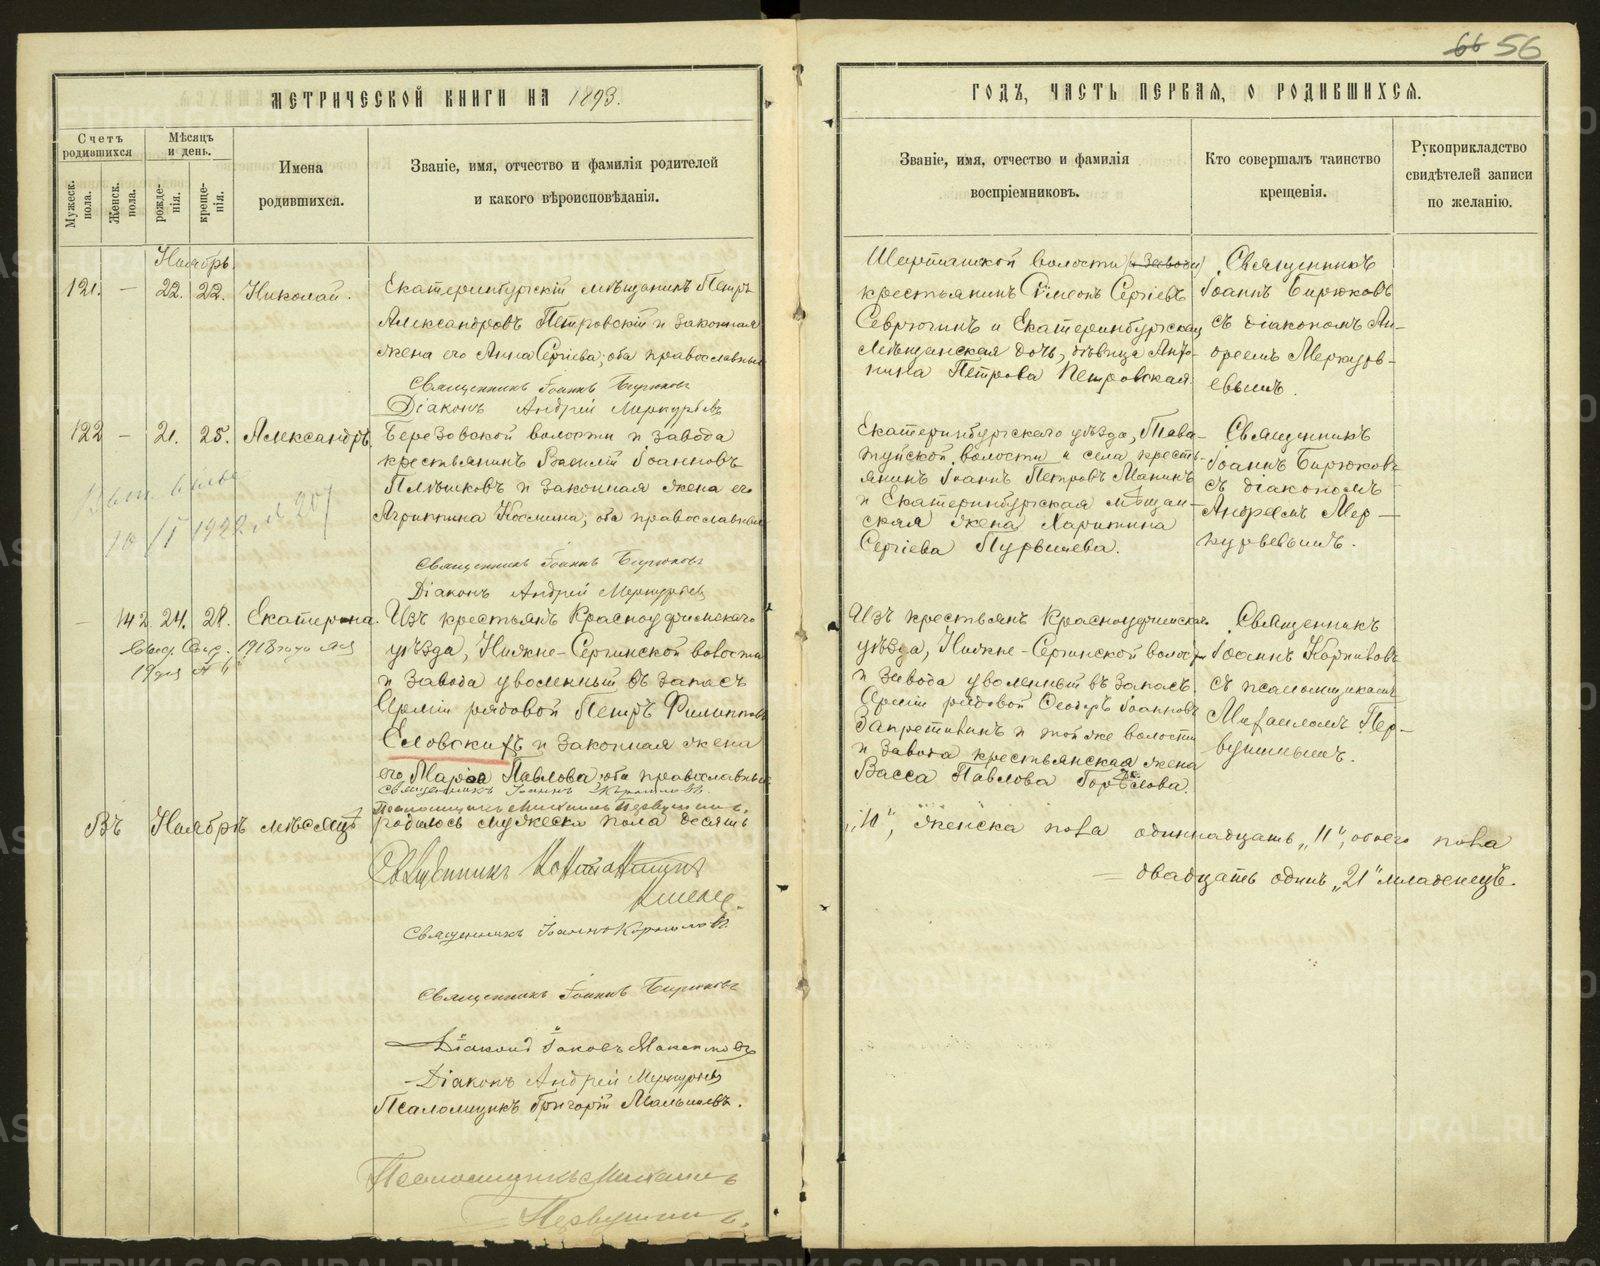 56
МЕТРИЧЕСКОЙ КНИГИ НА 1893.
Счетъ родившихся
Мѣсяцъ и день.
Мужеск. пола.
Женск. пола.
рожде-нія.
креще-нія.
Имена
родившихся.
Званіе, имя, отчество и фамилія родителей
и какого вѣроисповѣданія.
Ноябрь.
121. — 22. 22. Николай.
Екатеринбургскій мѣщанинъ Петръ
Александровъ Петровскій и законная
жена его Анна Сергіева, оба православные
Священникъ Іоаннъ Бирюковъ
Діаконъ Андрей Меркурьевъ
122 — 21. 25. Александръ
Березовской волости и завода
крестьянинъ Василій Іоанновъ
Плѣшковъ и законная жена его
Агриппина Космина, оба православные
1922 № 207
Священникъ Іоаннъ Бирюковъ
Діаконъ Андрей Меркурьевъ
— 142 24. 28. Екатерина.
Изъ крестьянъ Красноуфимскаго
уѣзда, Нижне-Сергинской волости
и завода уволенный въ запасъ
Арміи рядовой Петръ Филипповъ
Еловскихъ и законная жена
его Марія Павлова, оба православные
1918 года
19
Священникъ Іоаннъ Корниловъ.
Псаломщикъ Михаилъ Первушинъ.
Въ Ноябрѣ мѣсяцѣ родилось мужеска пола десять
Священникъ Константинъ
Священникъ Іоаннъ Корниловъ
Священникъ Іоаннъ Бирюковъ
Діаконъ Іаковъ Максимовъ
Діаконъ Андрей Меркурьевъ
Псаломщикъ Григорій Малышевъ.
Псаломщикъ Михаилъ
Первушинъ.
ГОДЪ, ЧАСТЬ ПЕРВАЯ, О РОДИВШИХСЯ.
Званіе, имя, отчество и фамилія
воспріемниковъ.
Кто совершалъ таинство
крещенія.
Рукоприкладство
свидѣтелей записи
по желанію.
Шарташской волости (и завода)
крестьянинъ Симеонъ Сергіевъ
Севрюгинъ и Екатеринбургская
мѣщанская дочь, дѣвица Анто-
нина Петрова Петровская.
Священникъ
Іоаннъ Бирюковъ
съ діакономъ Ан-
дреемъ Меркурь-
евымъ.
Екатеринбургскаго уѣзда, Пава-
туйской волости и села кресть-
янинъ Іоаннъ Петровъ Манинъ
и Екатеринбургская мѣщан-
ская жена Харитина
Сергіева Пурвишева.
Священникъ
Іоаннъ Бирюковъ
съ діакономъ
Андреемъ Мер-
курьевымъ.
Изъ крестьянъ Красноуфимскаго
уѣзда, Нижне-Сергинской волости
и завода уволенный въ запасъ
Арміи рядовой Ѳеодоръ Іоанновъ
Запретилинъ и той же волости
и завода крестьянская жена
Васса Павлова Горбунова.
Священникъ
Іоаннъ Корниловъ
съ псаломщикомъ
Михаиломъ Пер-
вушинымъ.
„10“, женска пола одиннадцать „11“, обоего пола
— двадцать одинъ „21“ младенецъ.
METRIKI.GASO-URAL.RU